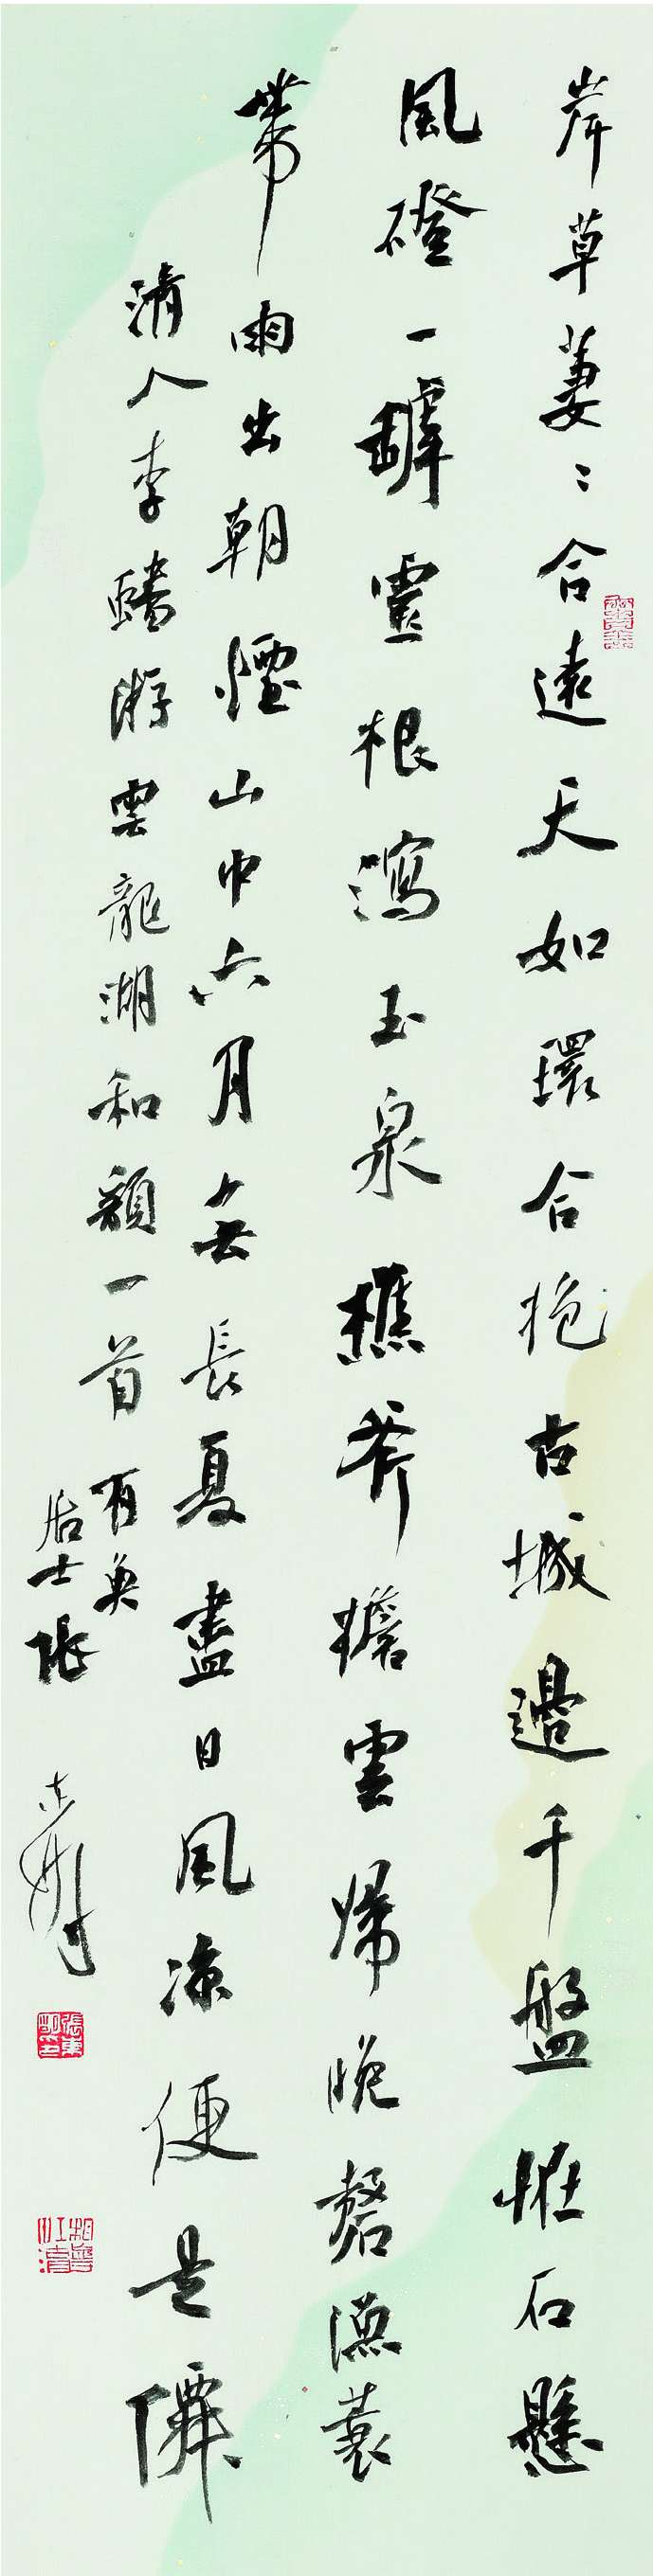 岸草萋〻合遠天如環合抱古城邊千盤怪石懸
風磴一罅靈根瀉玉泉樵斧擔雲歸晚磬漁蓑
帶雨出朝煙山中六月無長夏盡日風涼便是僊
清人李游雲龍湖和韻一首
有奐
居士張